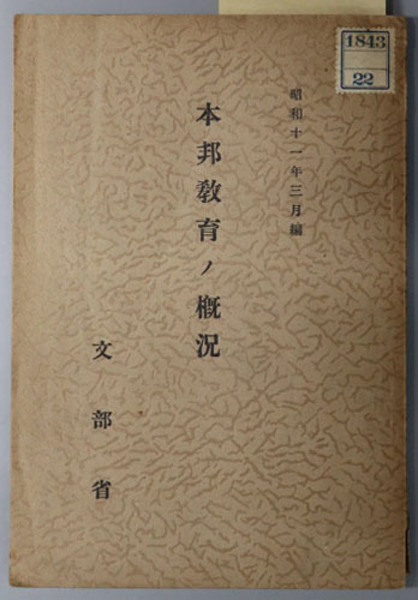 1843
22
昭和十一年三月編
本邦教育ノ概況
文部省